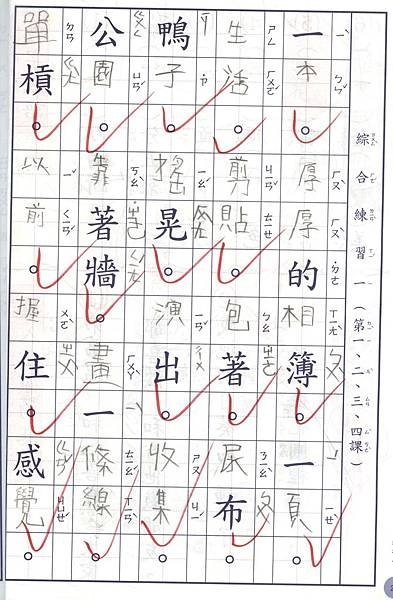 綜合練習一(第一、二、三、四課)
一本。厚厚的相簿。一頁。
生活。剪貼。包著。尿布。
鴨子。搖晃。演出。收集。
公園。靠著牆。畫一條線。
單槓。以前。握住。感覺。